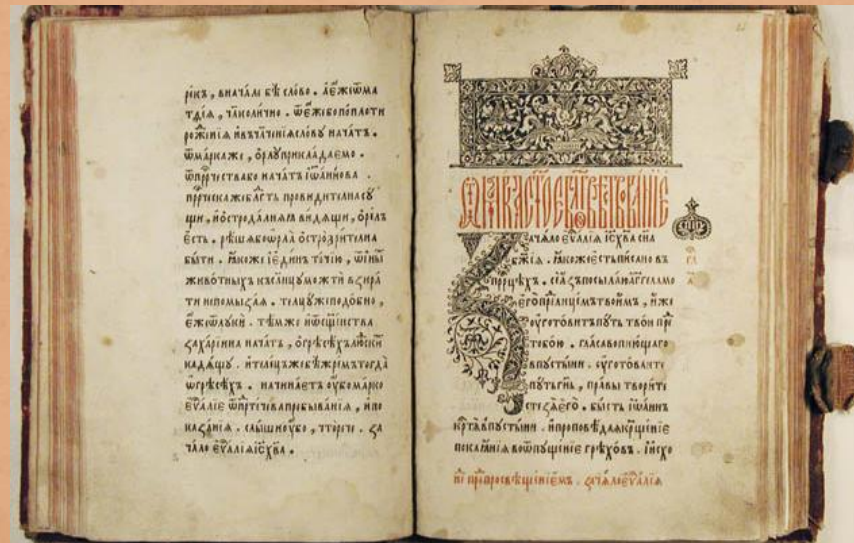 рекъ, вначалѣ бѣ слово. а҆ е҆же ѿ ма
тѳїа, чл҃колично. ѿ е҆же бо по плоти
рожⷣенїѧ и҆ въчл҃ченїѧ слову начатъ.
ѿ марка же, ѻ҆рлу прикладаемо.
ѿ прⷪ҇рчества бо начатъ і҆ѡа́ннова.
прⷪ҇рческа же блгⷣть провидителна су
щи, и҆ ѻ҆стро далнѧѧ видѧщи, ѻ҆релъ
є҆сть. рѣша бо ѡ҆рла̀ ѻ҆строзрителна
быти. ꙗ҆коже і҆ єди́нъ то́чїю, ѿ и҆ны
живо́тныхъ къ слн҃цу мо́жти взира
ти не помыза́ѧ. телцу́ же подо́бно,
е҆же ѿ луки̂. тѣ́мже и҆ ѿ сщ҃е́нства
заха́рїина нача́тъ, ѻ҆ грѣсѣ́хъ лю́скихъ
кадѧ́щу. и҆ теле́цъ же бѣ жре́мъ тогда̀
ѡ҆ грѣсѣ́хъ. начина́етъ ᲂу҆́бо ма́рко
є҆ѵⷢ҇а́лїе ѿ прⷣте́чева пребыва́нїѧ, и҆ по
каза́нїѧ. слы́ши ᲂу҆́бо, что̀ рече́. за
ча́ло є҆ѵⷢ҇а́лїѧ і҆с҃ хв҃а.
за ча́ло є҆ѵⷢ҇а́лїѧ і҆с҃ хв҃а сн҃а
бж҃їѧ. ꙗ҆́коже є҆́сть пи́сано въ
прⷪ҇рцѣхъ. се а҆́зъ посыла́ю а҆́гг҃ела мо
е҆го̀ пре́дъ лице́мъ твои́мъ, и҆́же
ᲂу҆гото́витъ пу́ть тво́и пре
тобо́ю. гла́съ вопию́щаго
в пусты́ни. ᲂу҆гото́вите
пу́ть гн҃ь, пра́вы твори́те
стезѧ̀ є҆го̀. бы́сть і҆ѡа́ннъ
крⷭ҇тѧ̀ в пусты́ни. и҆ проповѣ́даѧ крⷭ҇ще́нїе
покаѧ́нїѧ во ѿпуще́нїе грѣхо́въ. и҆ исхо